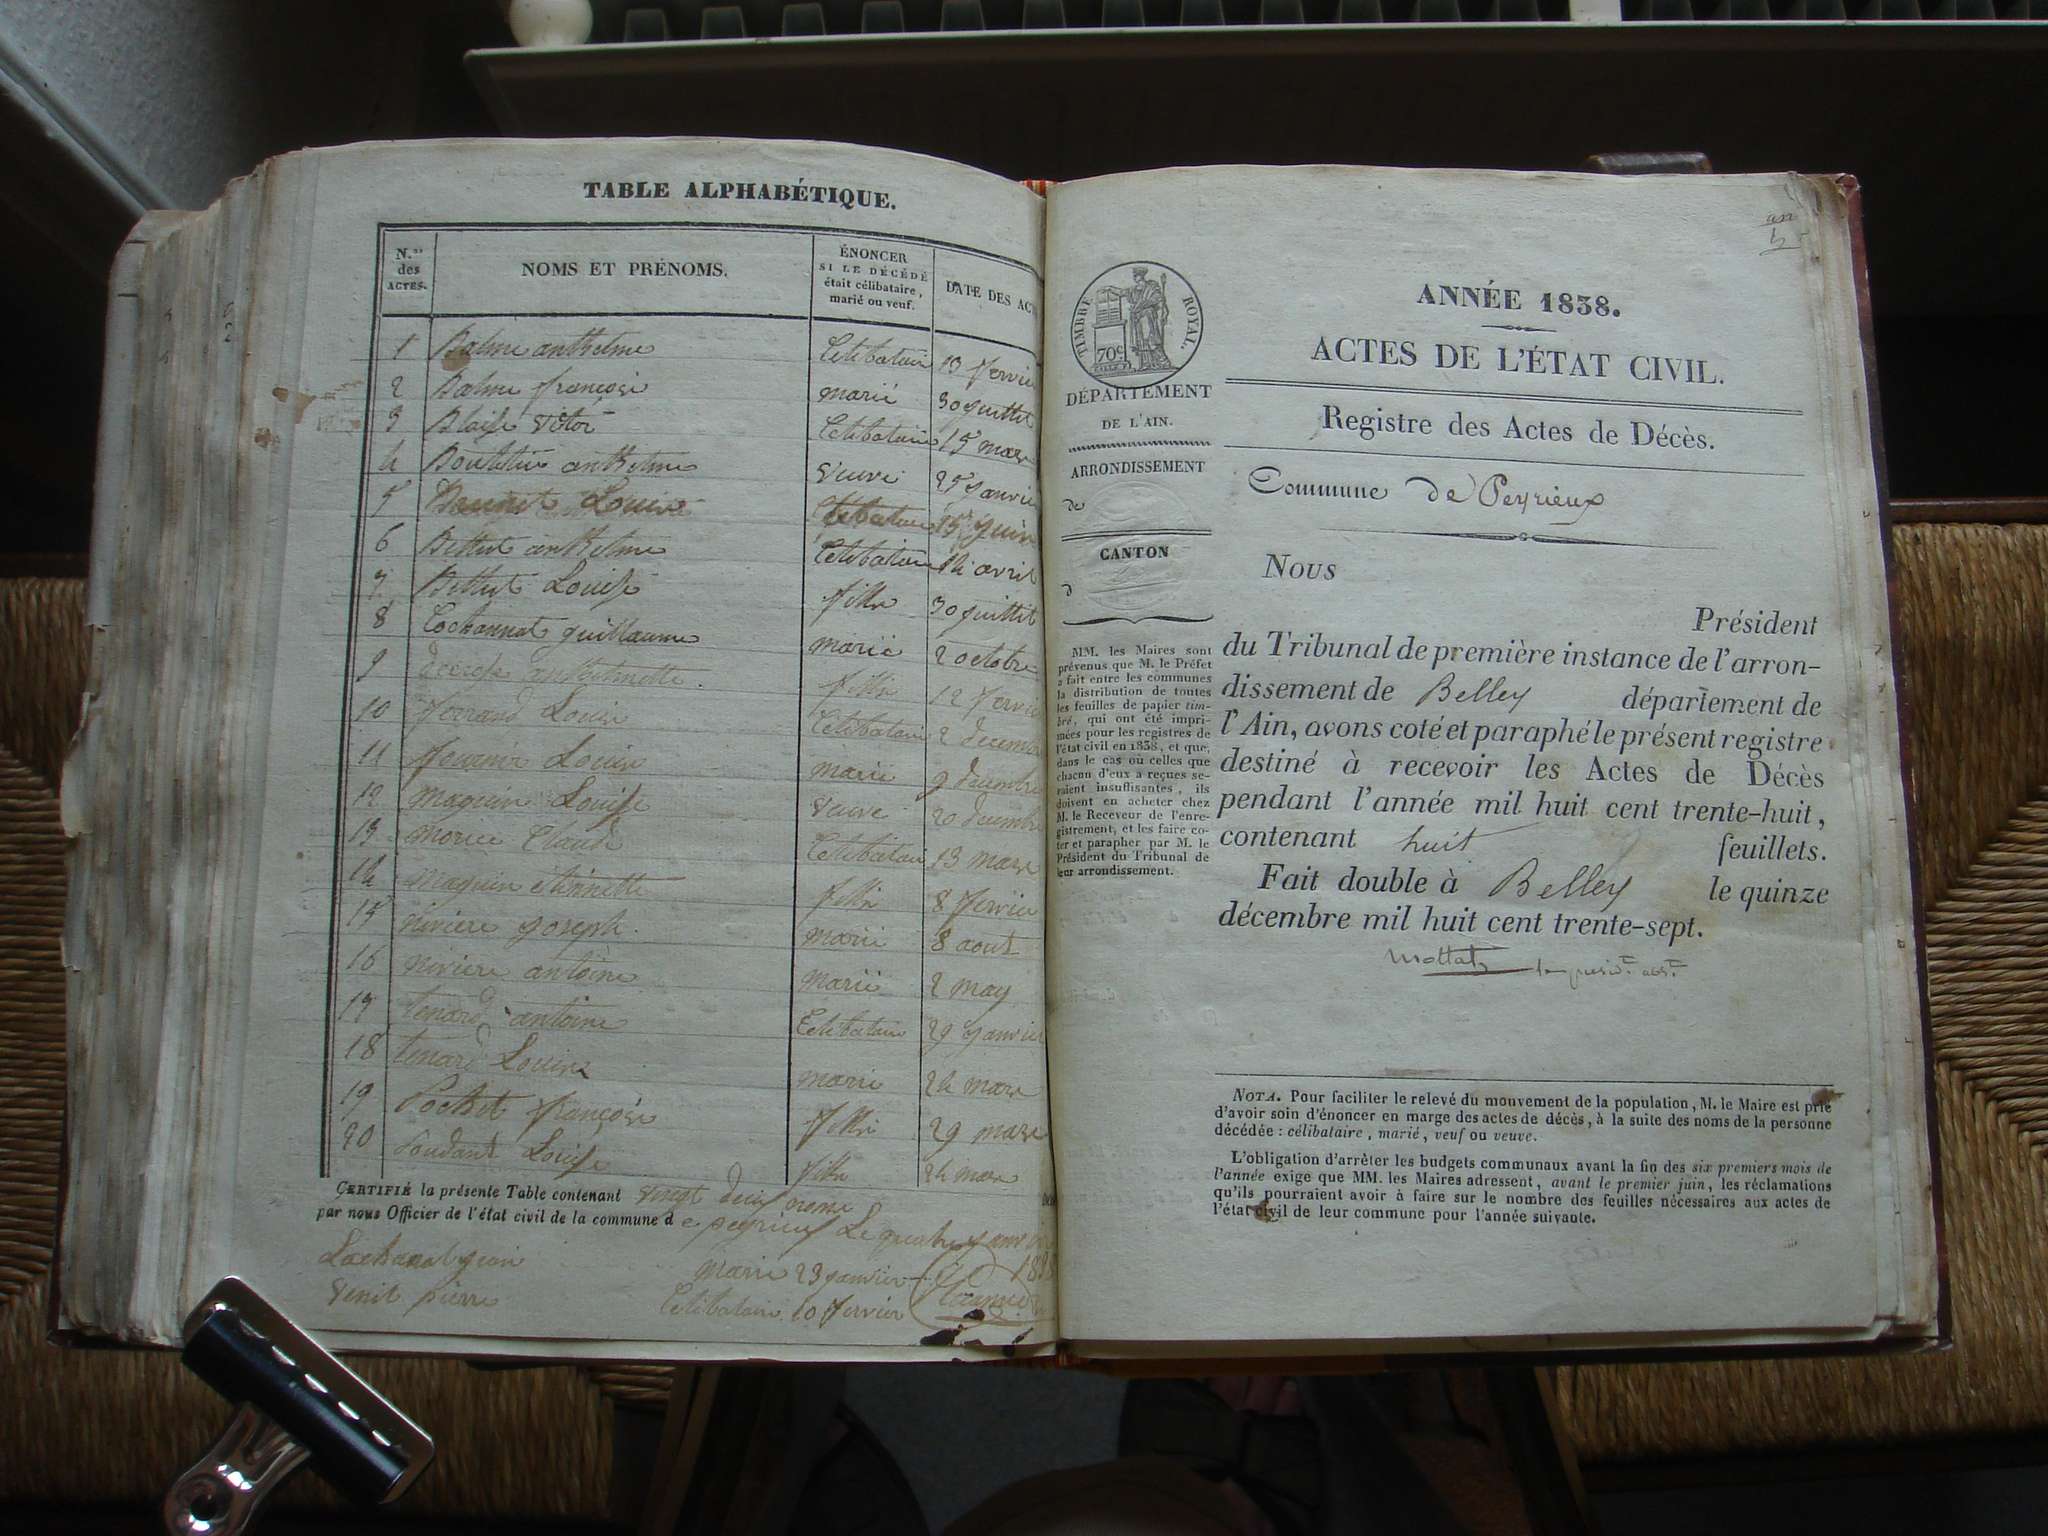 TABLE ALPHABÉTIQUE.
N.os des ACTES. NOMS ET PRÉNOMS. ÉNONCER SI LE DÉCÉDÉ était célibataire, marié ou veuf. DATE DES ACT
1 Balme anthelme Celibatair 13 fevrier
2 Balme françoise marié 30 juillet
3 Blaise victor Celibataire 15 mars
4 anthelme veuve 25 janvie
5 Louise Celibataire 15 juin
6 Bettet anthelme Celibataire 14 avril
7 Bettet Louise fille 30 juillet
8 Cochonnat guillaume marié 2 octobre
9 fille 12 fevrie
10 ferrand Louise Celibatair 2 decembre
11 fournier Louise marié 9 decembre
12 maguin Louise veuve 20 decembre
13 morice Claude Celibatair 13 mars
14 maguin etiennette fille 8 fevrier
15 riviere joseph. marié 8 aout
16 riviere antoine marié 2 may
17 tenard antoine Celibataire 29 janvier
18 tenard Louise marié 24 mars
19 Pochet françoise fille 29 mars
20 Loudant Louise fille 24 mars
CERTIFIÉ la présente Table contenant vingt deux noms
par nous Officier de l'état civil de la commune de peyrieux Le
Lachanal jean marié 23 janvier 1838
Genit pierre Celibataire 10 fevrier
TIMBRE ROYAL.
70c
DÉPARTEMENT
DE L'AIN.
ARRONDISSEMENT
de
CANTON
d
MM. les Maires sont
prévenus que M. le Préfet
a fait entre les communes
la distribution de toutes
les feuilles de papier tim-
bré, qui ont été impri-
mées pour les registres de
l'état civil en 1838, et que,
dans le cas où celles que
chacun d'eux a reçues se-
raient insuffisantes, ils
doivent en acheter chez
M. le Receveur de l'enre-
gistrement, et les faire co-
ter et parapher par M. le
Président du Tribunal de
leur arrondissement.
ANNÉE 1838.
ACTES DE L'ÉTAT CIVIL.
Registre des Actes de Décès.
Commune de Peyrieux
Nous
Président
du Tribunal de première instance de l'arron-
dissement de Belley département de
l'Ain, avons coté et paraphé le présent registre
destiné à recevoir les Actes de Décès
pendant l'année mil huit cent trente-huit,
contenant huit feuillets.
Fait double à Belley le quinze
décembre mil huit cent trente-sept.
NOTA. Pour faciliter le relevé du mouvement de la population, M. le Maire est prié
d'avoir soin d'énoncer en marge des actes de décès, à la suite des noms de la personne
décédée : célibataire, marié, veuf ou veuve.
L'obligation d'arrêter les budgets communaux avant la fin des six premiers mois de
l'année exige que MM. les Maires adressent, avant le premier juin, les réclamations
qu'ils pourraient avoir à faire sur le nombre des feuilles nécessaires aux actes de
l'état civil de leur commune pour l'année suivante.